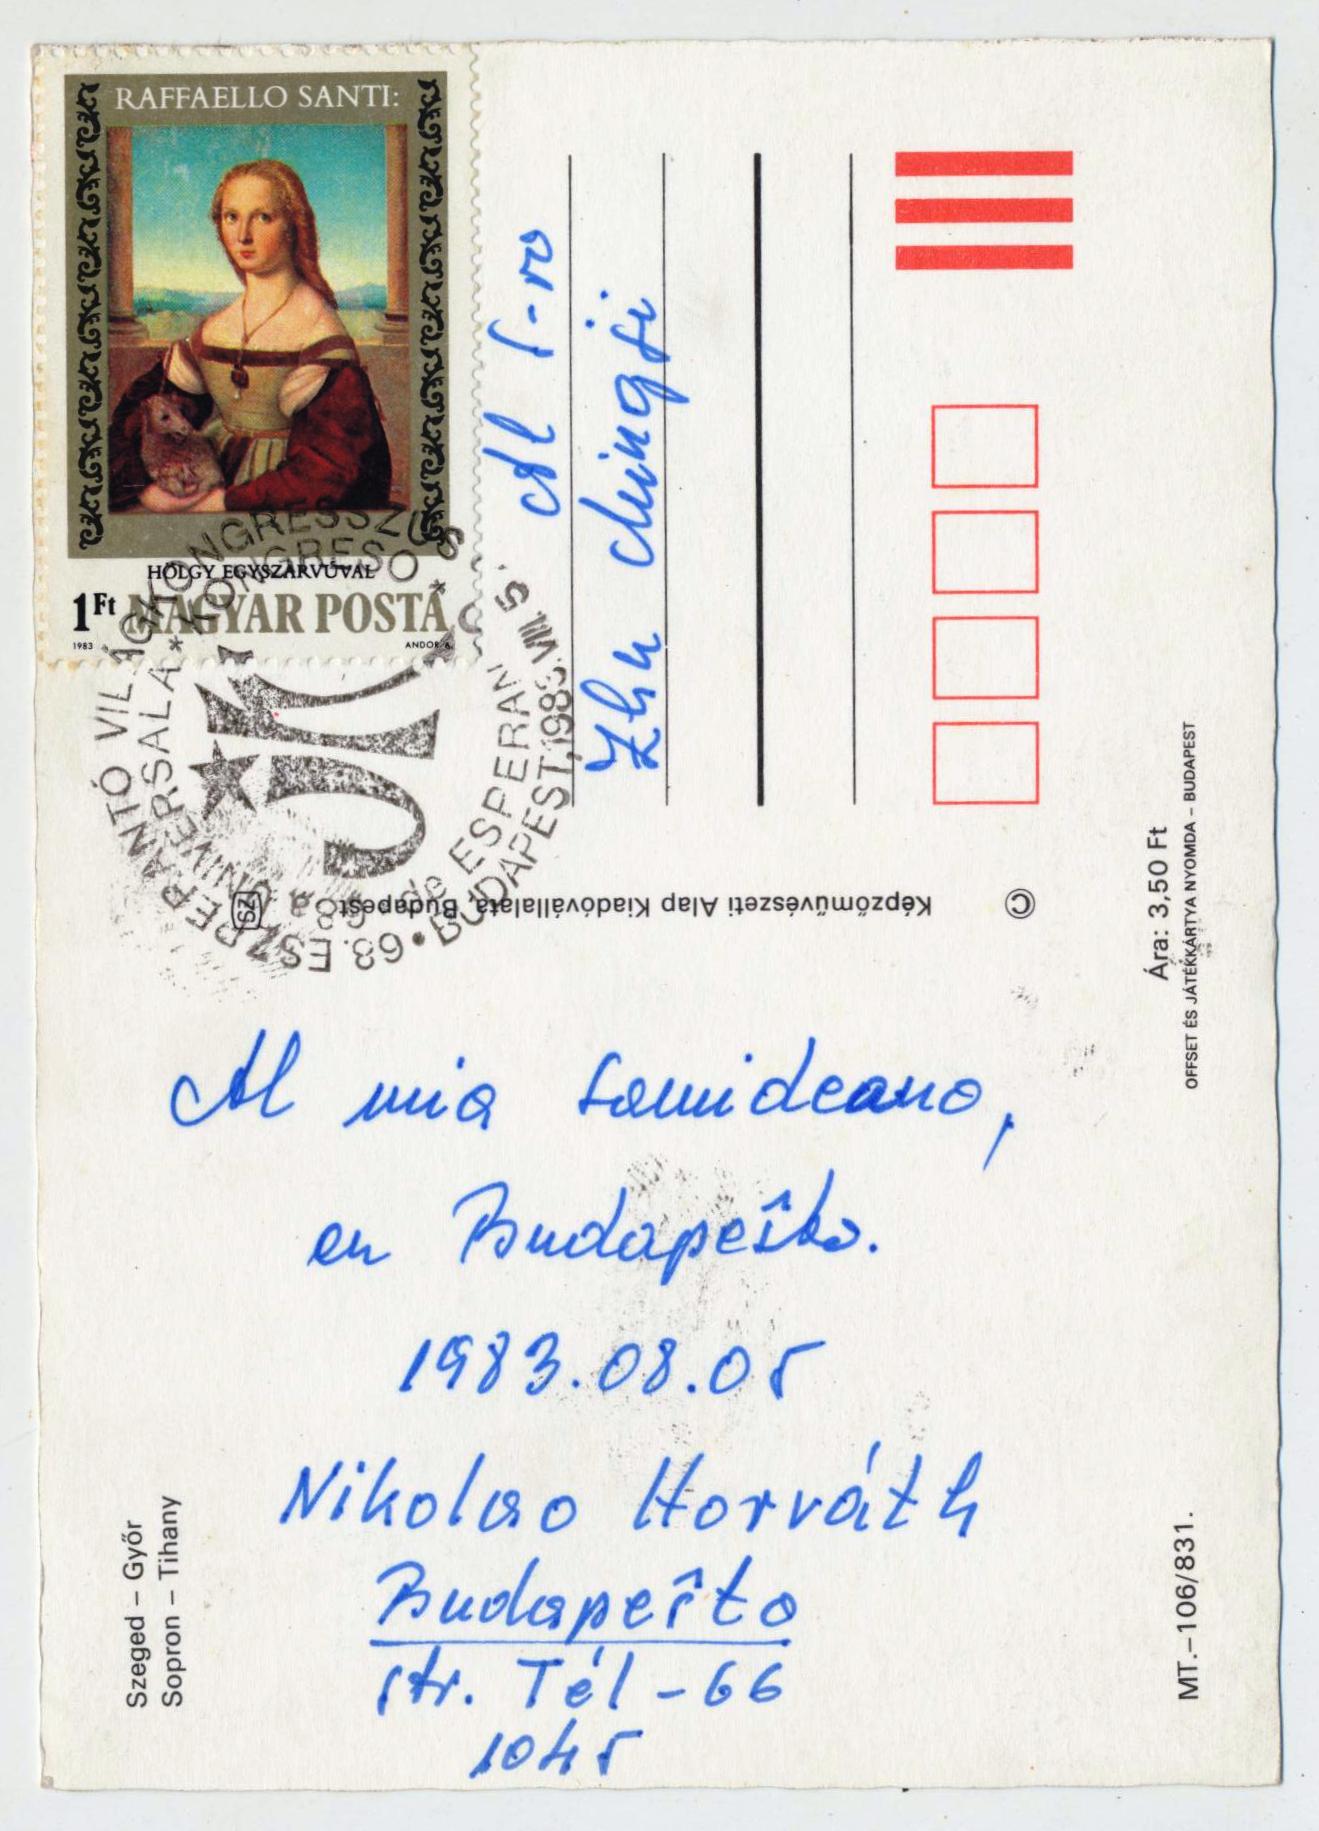 RAFFAELLO SANTI:
HÖLGY EGYSZARVÚVAL
1Ft MAGYAR POSTA
1983 ANDOR A.
63. ESZPERANTÓ VILÁGKONGRESSZUS
68a UNIVERSALA * KONGRESO *
de ESPERANTO
BUDAPEST, 1983. VIII. 5.
Al s-ro
Zhu Mingji
Képzőművészeti Alap Kiadóvállalata, Budapest
SZ
©
Ára: 3,50 Ft
OFFSET ÉS JÁTÉKKÁRTYA NYOMDA – BUDAPEST
Al mia samideano,
en Budapeŝto.
1983.08.05
Nikolao Horváth
Budapeŝto
str. Tél - 66
1045
Szeged – Győr
Sopron – Tihany
MT.–106/831.